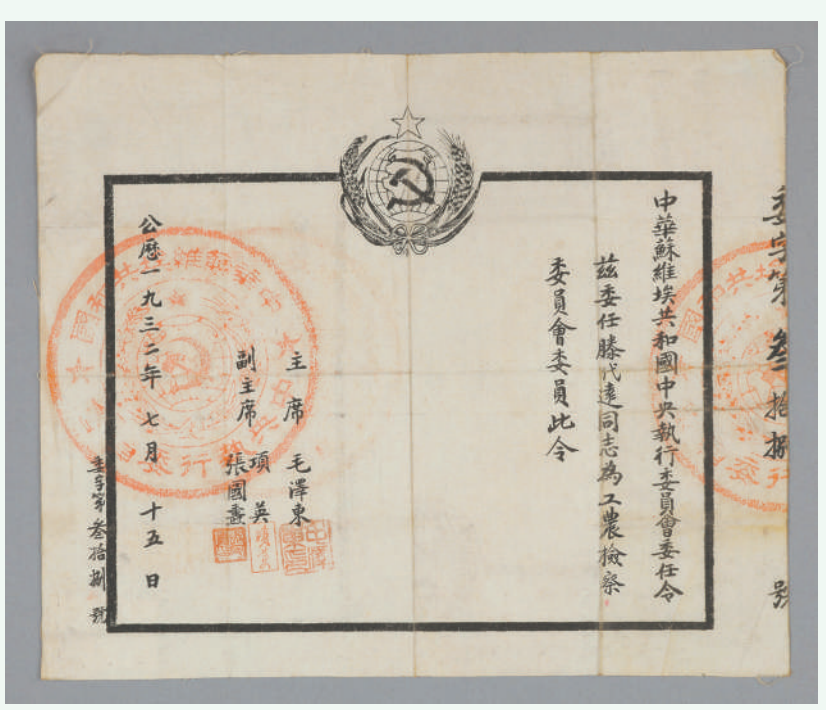 委字第叁拾捌號
中華蘇維埃共和國中央執行委員會委任令
茲委任滕代遠同志為工農檢察
委員會委員此令
主席 毛澤東
副主席 項英
張國燾
公歷一九三二年七月十五日
委字第叁拾捌號